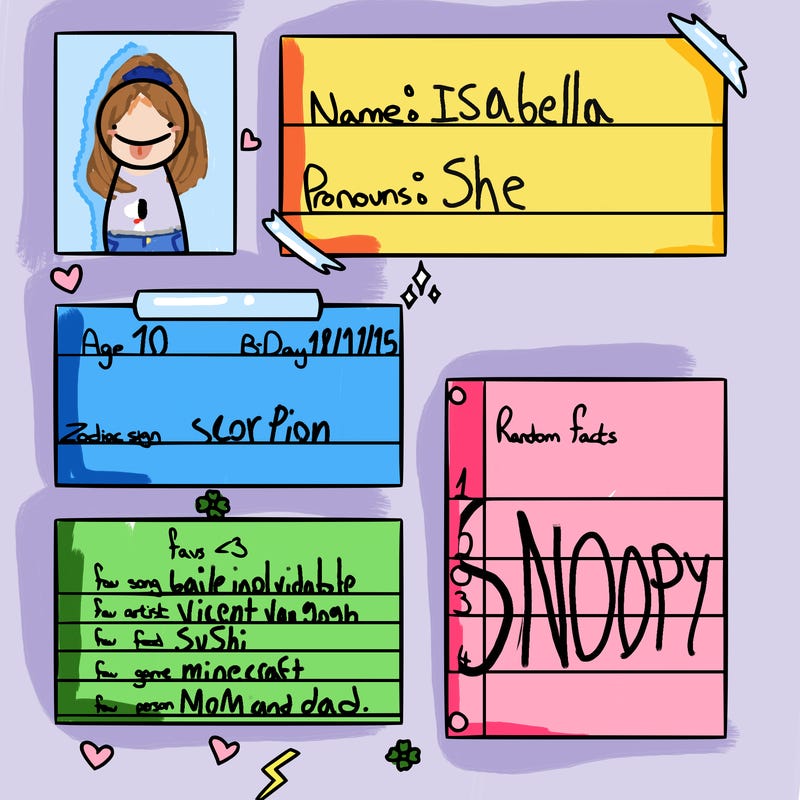 Name: Isabella
Pronouns: She
Age 10 B-Day 18/11/15
Zodiac sign scorpion
Random facts
1
2
3
4
SNOOPY
favs <3
fav song baile inolvidable
fav artist Vicent Van gogh
fav food SuShi
fav game minecraft
fav person MOM and dad.